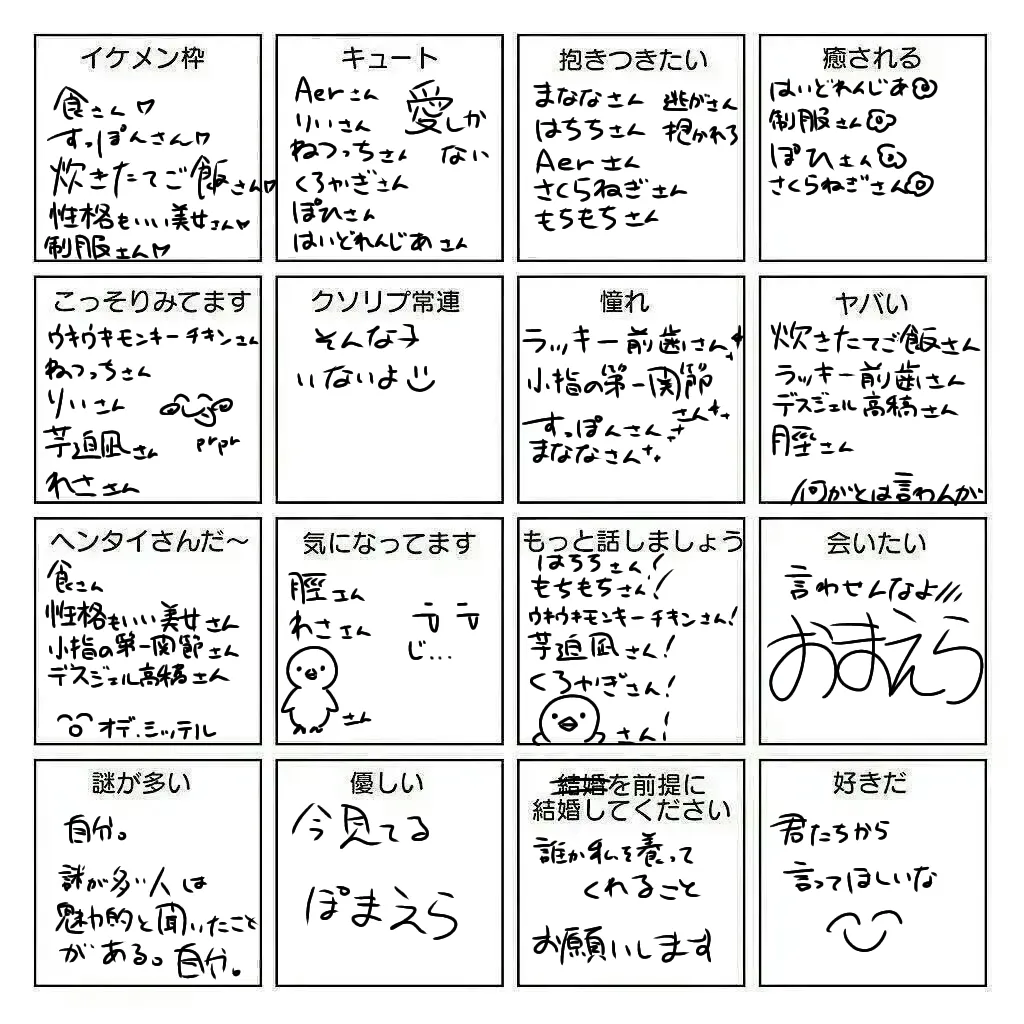 イケメン枠
食さん♡
すっぽんさん♡
炊きたてご飯さん♡
性格もいい美女さん♡
制服さん♡
キュート
Aerさん
りいさん
ねつっちさん
くろかぎさん
ぽひさん
はいどれんじあさん
愛しか
ない
抱きつきたい
まななさん
はちちさん
Aerさん
さくらねぎさん
もちもちさん
逃がさん
抱かれろ
癒される
はいどれんじあ
制服さん
ぽひさん
さくらねぎさん
こっそりみてます
ウキウキモンキーチキンさん
ねつっちさん
りいさん
芋迫凪さん
れささん
prpr
クソリプ常連
そんな子
いないよ
憧れ
ラッキー前歯さん
小指の第一関節
さん
すっぽんさん
まななさん
ヤバい
炊きたてご飯さん
ラッキー前歯さん
デスジェル高橋さん
脛さん
何がとは言わんが
ヘンタイさんだ～
食さん
性格もいい美女さん
小指の第一関節さん
デスジェル高橋さん
オデ.シッテル
気になってます
脛さん
れささん
じ...
さん
もっと話しましょう
はちちさん!
もちもちさん!
ウキウキモンキーチキンさん!
芋迫凪さん!
くろかぎさん!
さん!
会いたい
言わせんなよ///
おまえら
謎が多い
自分。
謎が多い人は
魅力的と聞いたこと
がある。自分。
優しい
今見てる
ぽまえら
結婚を前提に
結婚してください
誰か私を養って
くれること
お願いします
好きだ
君たちから
言ってほしいな